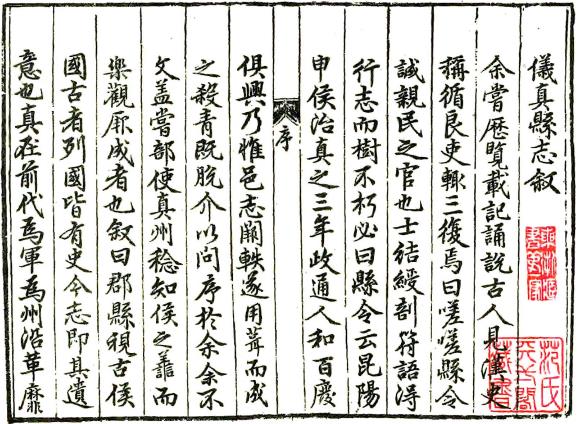 儀真縣志叙
余嘗歷覽載記誦說古人見漢史
稱循良吏輙三復焉曰嗟嗟縣令
誠親民之官也士結綬剖符語淂
行志而樹不朽必曰縣令云昆陽
申侯治真之三年政通人和百廢
序
俱興乃惟邑志闕軼遂用葺而成
之殺青既脫介以問序於余余不
文盖嘗部使真州稔知侯之而
樂觀厥成者也叙曰郡縣視古侯
國古者列國皆有史今志即其遺
意也真在前代為軍為州沿革靡
范氏天一閣藏書